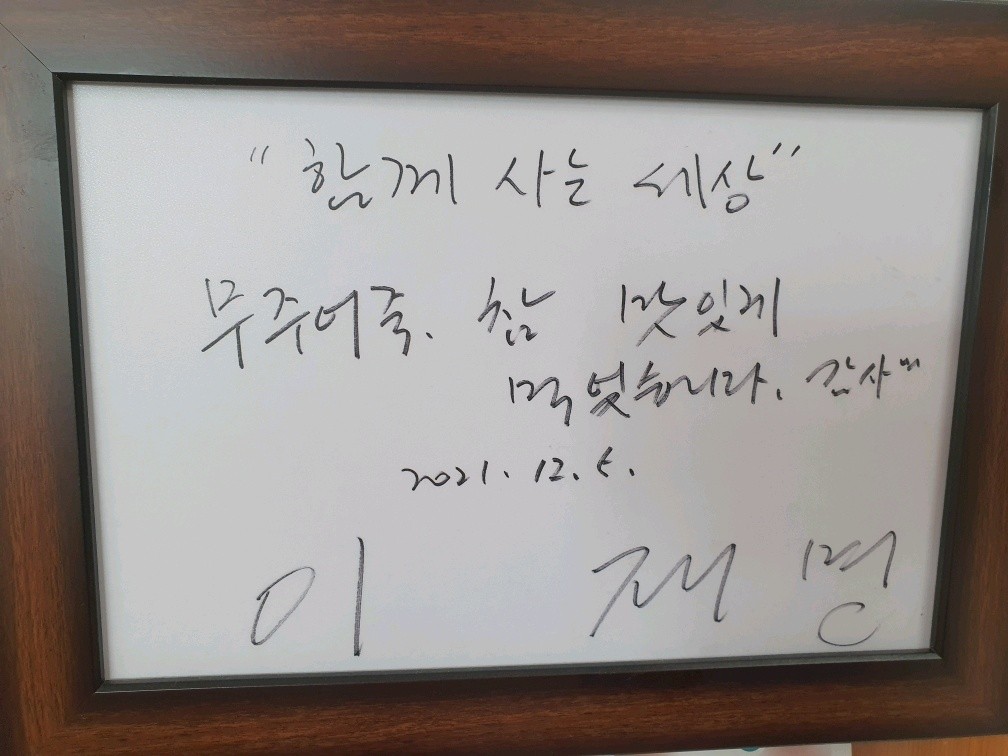 "함께 사는 세상"
무주어죽. 참 맛있게
먹었습니다. 감사"
2021. 12. 5.
이 재 명